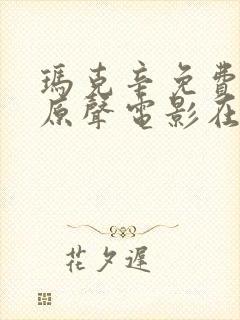 瑪克辛免費
原聲電影在
花夕遲